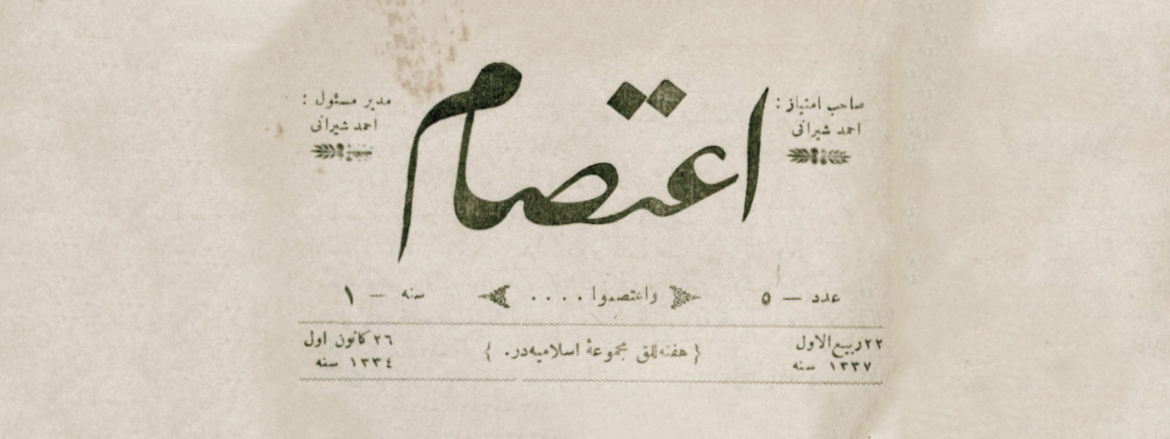 صاحب امتیاز :
احمد شیرانی
اعتصام
مدیر مسئول :
احمد شیرانی
عدد — ٥
واعتصموا . . . .
سنه — ١
٢٢ ربیع‌الاول
١٣٣٧ سنه
{ هفته‌لق مجموعهٔ اسلامیه‌در. }
٢٦ کانون اول
١٣٣٤ سنه